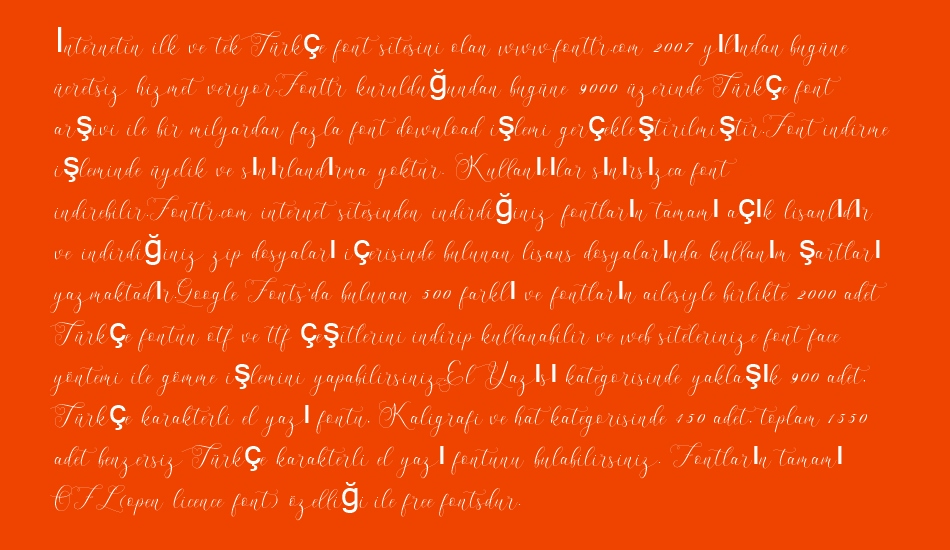 İnternetin ilk ve tek Türkçe font sitesini olan www.fonttr.com 2007 yılından bugüne
ücretsiz hizmet veriyor.Fonttr kurulduğundan bugüne 9000 üzerinde Türkçe font
arşivi ile bir milyardan fazla font download işlemi gerçekleştirilmiştir.Font indirme
işleminde üyelik ve sınırlandırma yoktur. Kullanıcılar sınırsızca font
indirebilir.Fonttr.com internet sitesinden indirdiğiniz fontların tamamı açık lisanlıdır
ve indirdiğiniz zip dosyaları içerisinde bulunan lisans dosyalarında kullanım şartları
yazmaktadır.Google Fonts'da bulunan 500 farklı ve fontların ailesiyle birlikte 2000 adet
Türkçe fontun otf ve ttf çeşitlerini indirip kullanabilir ve web sitelerinize font face
yöntemi ile gömme işlemini yapabilirsiniz.El Yazısı kategorisinde yaklaşık 900 adet,
Türkçe karakterli el yazı fontu, Kaligrafi ve hat kategorisinde 450 adet, toplam 1350
adet benzersiz Türkçe karakterli el yazı fontunu bulabilirsiniz. Fontların tamamı
OFL(open licence font) özelliği ile free fontsdur.